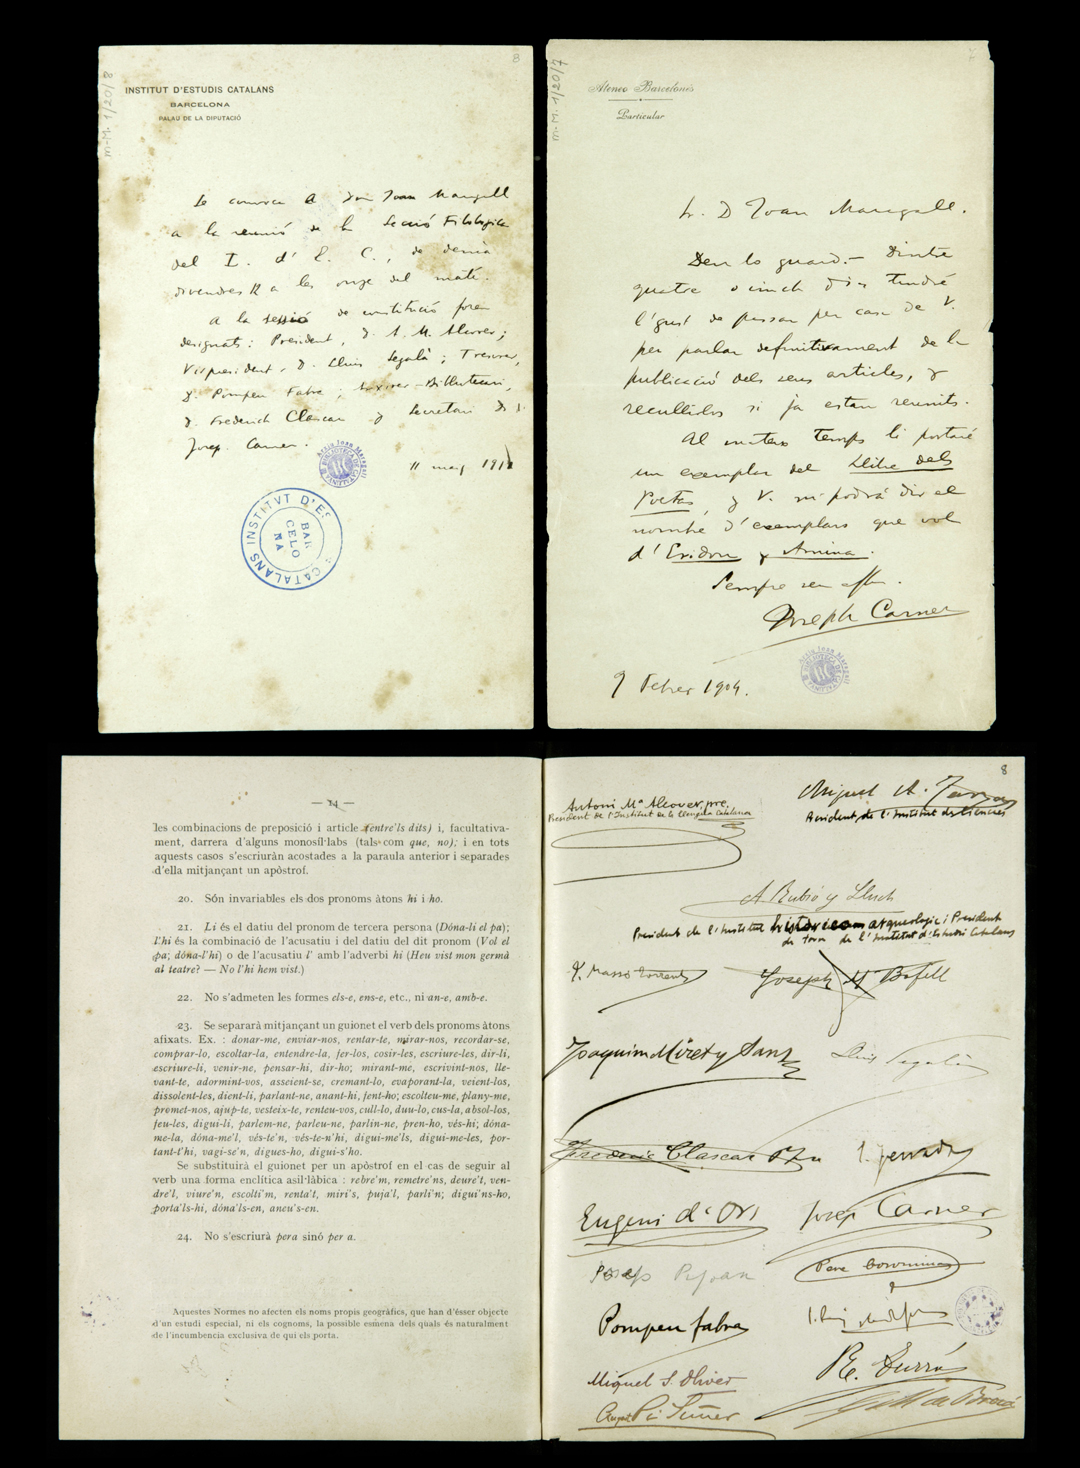 8
m-M. 1/20/8
INSTITUT D'ESTUDIS CATALANS
BARCELONA
PALAU DE LA DIPUTACIÓ
Se convoca a Don Joan Maragall
a la reunió de la Secció Filològica
del I. d' E. C., de demà
divendres 12 a les onze del matí.
A la sessió de constitució foren
designats: President, D. A. M. Alcover;
Vispresident, D. Lluis Segalà; Tresorer,
D. Pompeu Fabra;
D. Frederich Clascar y Secretari D.
Josep Carner.
11 maig 1911
Arxiu Joan Maragall
BIBLIOTECA DE CATALUNYA
INSTITVT D'ES CATALANS
BAR
CELO
NA
7
m-M. 1/20/7
Ateneo Barcelonés
Particular
Sr. D Joan Maragall.
Deu lo guard. – Dintre
quatre o cinch dies tindré
l'gust de passar per casa de V.
per parlar definitivament de la
publicació dels seus articles, y
recullirlos si ja estan reunits.
Al mateix temps li portaré
un exemplar del Llibre dels
Poetas, y V. m' podrá dir el
nombre d'exemplars que vol
d'Eridon y Amina.
Sempre seu affm.
Joseph Carner
9 Febrer 1904.
Arxiu Joan Maragall
BIBLIOTECA DE CATALUNYA
— 14 —
les combinacions de preposició i article (entre'ls dits) i, facultativa-
ment, darrera d'alguns monosíl·labs (tals com que, no); i en tots
aquests casos s'escriuràn acostades a la paraula anterior i separades
d'ella mitjançant un apòstrof.
20. Són invariables els dos pronoms àtons hi i ho.
21. Li és el datiu del pronom de tercera persona (Dóna-li el pa);
l'hi és la combinació de l'acusatiu i del datiu del dit pronom (Vol el
pa; dóna-l'hi) o de l'acusatiu l' amb l'adverbi hi (Heu vist mon germà
al teatre? — No l'hi hem vist.)
22. No s'admeten les formes els-e, ens-e, etc., ni an-e, amb-e.
23. Se separarà mitjançant un guionet el verb dels pronoms àtons
afixats. Ex. : donar-me, enviar-nos, rentar-te, mirar-nos, recordar-se,
comprar-lo, escoltar-la, entendre-la, fer-los, cosir-les, escriure-les, dir-li,
escriure-li, venir-ne, pensar-hi, dir-ho; mirant-me, escrivint-nos, lle-
vant-te, adormint-vos, asseient-se, cremant-lo, evaporant-la, veient-los,
dissolent-les, dient-li, parlant-ne, anant-hi, fent-ho; escolteu-me, plany-me,
promet-nos, ajup-te, vesteix-te, renteu-vos, cull-lo, duu-lo, cus-la, absol-los,
feu-les, digui-li, parlem-ne, parleu-ne, parlin-ne, pren-ho, vés-hi; dóna-
me-la, dóna-me'l, vés-te'n, vés-te-n'hi, digui-me'ls, digui-me-les, por-
tant-t'hi, vagi-se'n, digues-ho, digui-s'ho.
Se substituirà el guionet per un apòstrof en el cas de seguir al
verb una forma enclítica asil·làbica : rebre'm, remetre'ns, deure't, ven-
dre'l, viure'n, escolti'm, renta't, miri's, puja'l, parli'n; digui'ns-ho,
porta'ls-hi, dóna'ls-en, aneu's-en.
24. No s'escriurà pera sinó per a.
Aquestes Normes no afecten els noms propis geogràfics, que han d'ésser objecte
d'un estudi especial, ni els cognoms, la possible esmena dels quals és naturalment
de l'incumbencia exclusiva de qui els porta.
8
Antoni Mª Alcover, pre.
President de l'Institut de la Llengua Catalana
Miquel A.
President de l'Institut de Ciencies
A Rubió y Lluch
President de l'Institut historicom arqueologic i President
de torn de l'Institut d'Estudis Catalans
J. Massó Torrents
Joseph M Bofill
Joaquim Miret y Sans
Lluis Segalà
Frederic Clascar
Eugeni d'Ors
Josep Carner
Josep Pijoan
Pere Coromines
Pompeu Fabra
Miquel S. Oliver
E. Durán
August Pi Suñer